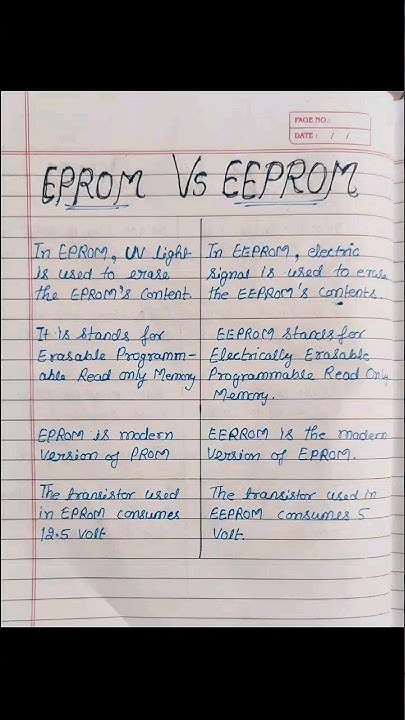 PAGE NO.:
DATE: / /
EPROM Vs EEPROM
In EPROM, UV light
is used to erase
the EPROM's Content.
In EEPROM, electric
signal is used to erase
the EEPROM's Contents.
It is stands for
Erasable Programm-
able Read only Memory
EEPROM stands for
Electrically Erasable
Programmable Read Only
Memory.
EPROM is modern
version of PROM
EEPROM is the modern
version of EPROM.
The transistor used
in EPROM consumes
12.5 volt
The transistor used in
EEPROM consumes 5
Volt.